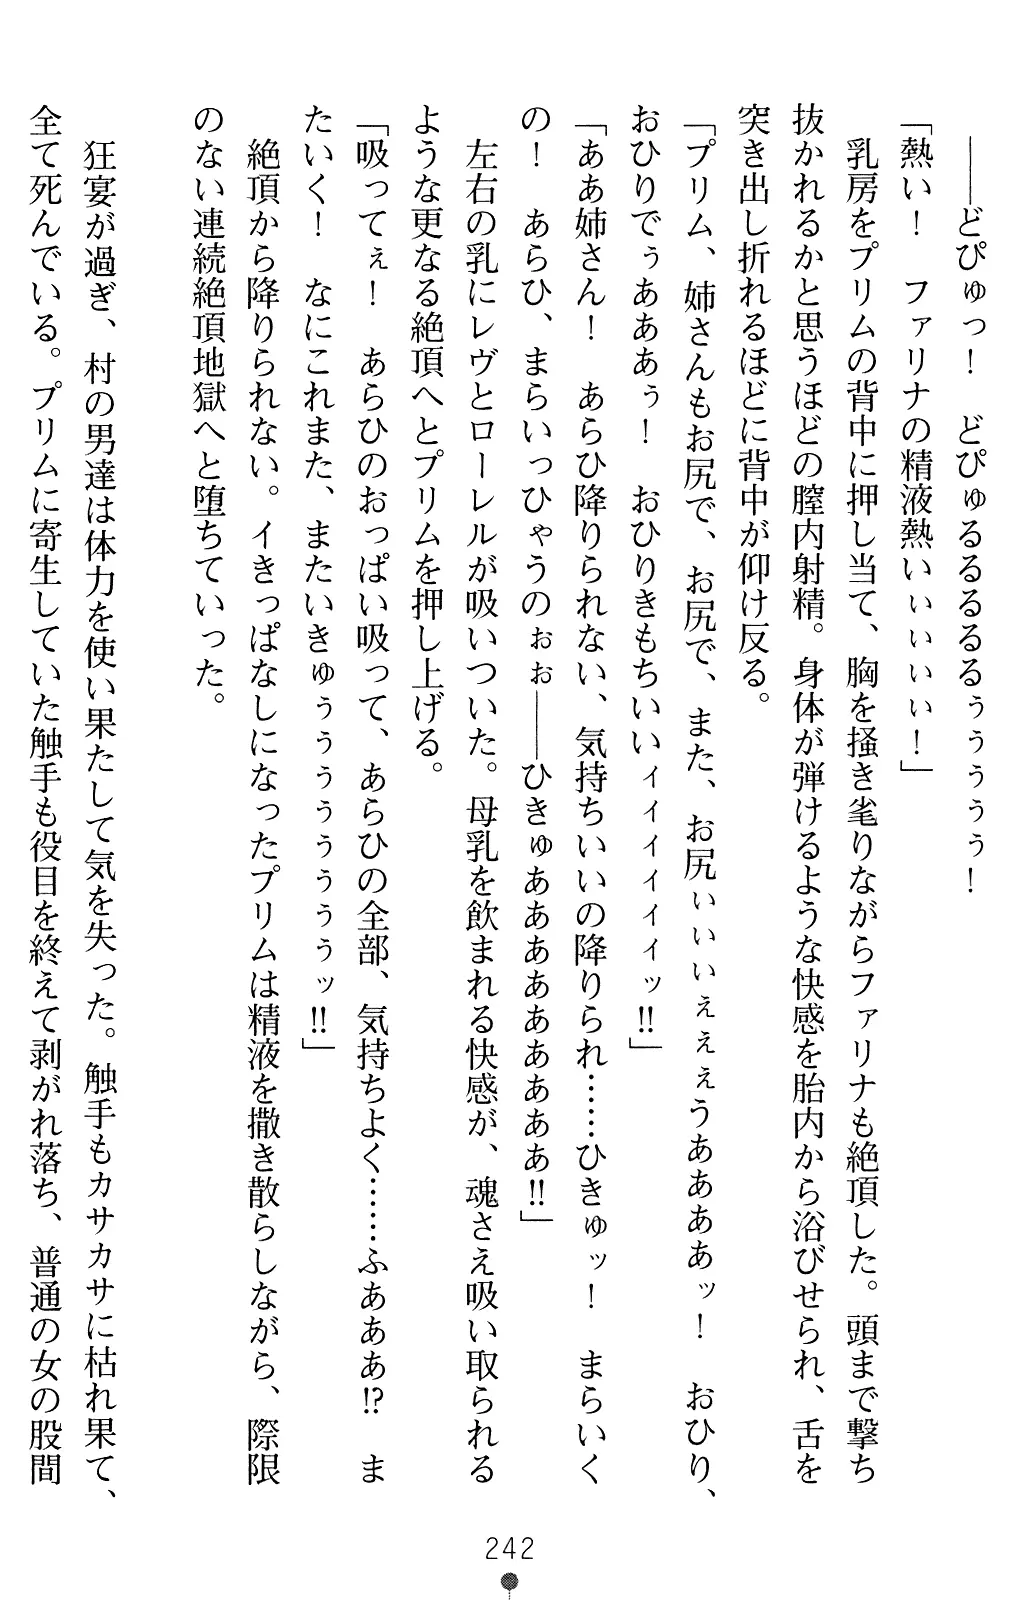 ――どぴゅっ！　どぴゅるるるるぅぅぅぅ！
「熱い！　ファリナの精液熱いぃぃぃぃ！」
　乳房をプリムの背中に押し当て、胸を掻き毟りながらファリナも絶頂した。頭まで撃ち
抜かれるかと思うほどの膣内射精。身体が弾けるような快感を胎内から浴びせられ、舌を
突き出し折れるほどに背中が仰け反る。
「プリム、姉さんもお尻で、お尻で、また、お尻ぃぃぃぇぇぇうああああッ！　おひり、
おひりでぅあああぅ！　おひりきもちいいィィィィィィッ!!」
「ああ姉さん！　あらひ降りられない、気持ちいいの降りられ……ひきゅッ！　まらいく
の！　あらひ、まらいっひゃうのぉぉ――ひきゅああああああああああ!!」
　左右の乳にレヴとローレルが吸いついた。母乳を飲まれる快感が、魂さえ吸い取られる
ような更なる絶頂へとプリムを押し上げる。
「吸ってぇ！　あらひのおっぱい吸って、あらひの全部、気持ちよく……ふあああ!?　ま
たいく！　なにこれまた、またいきゅぅぅぅぅぅぅぅッ!!」
　絶頂から降りられない。イきっぱなしになったプリムは精液を撒き散らしながら、際限
のない連続絶頂地獄へと堕ちていった。
　狂宴が過ぎ、村の男達は体力を使い果たして気を失った。触手もカサカサに枯れ果て、
全て死んでいる。プリムに寄生していた触手も役目を終えて剥がれ落ち、普通の女の股間
242